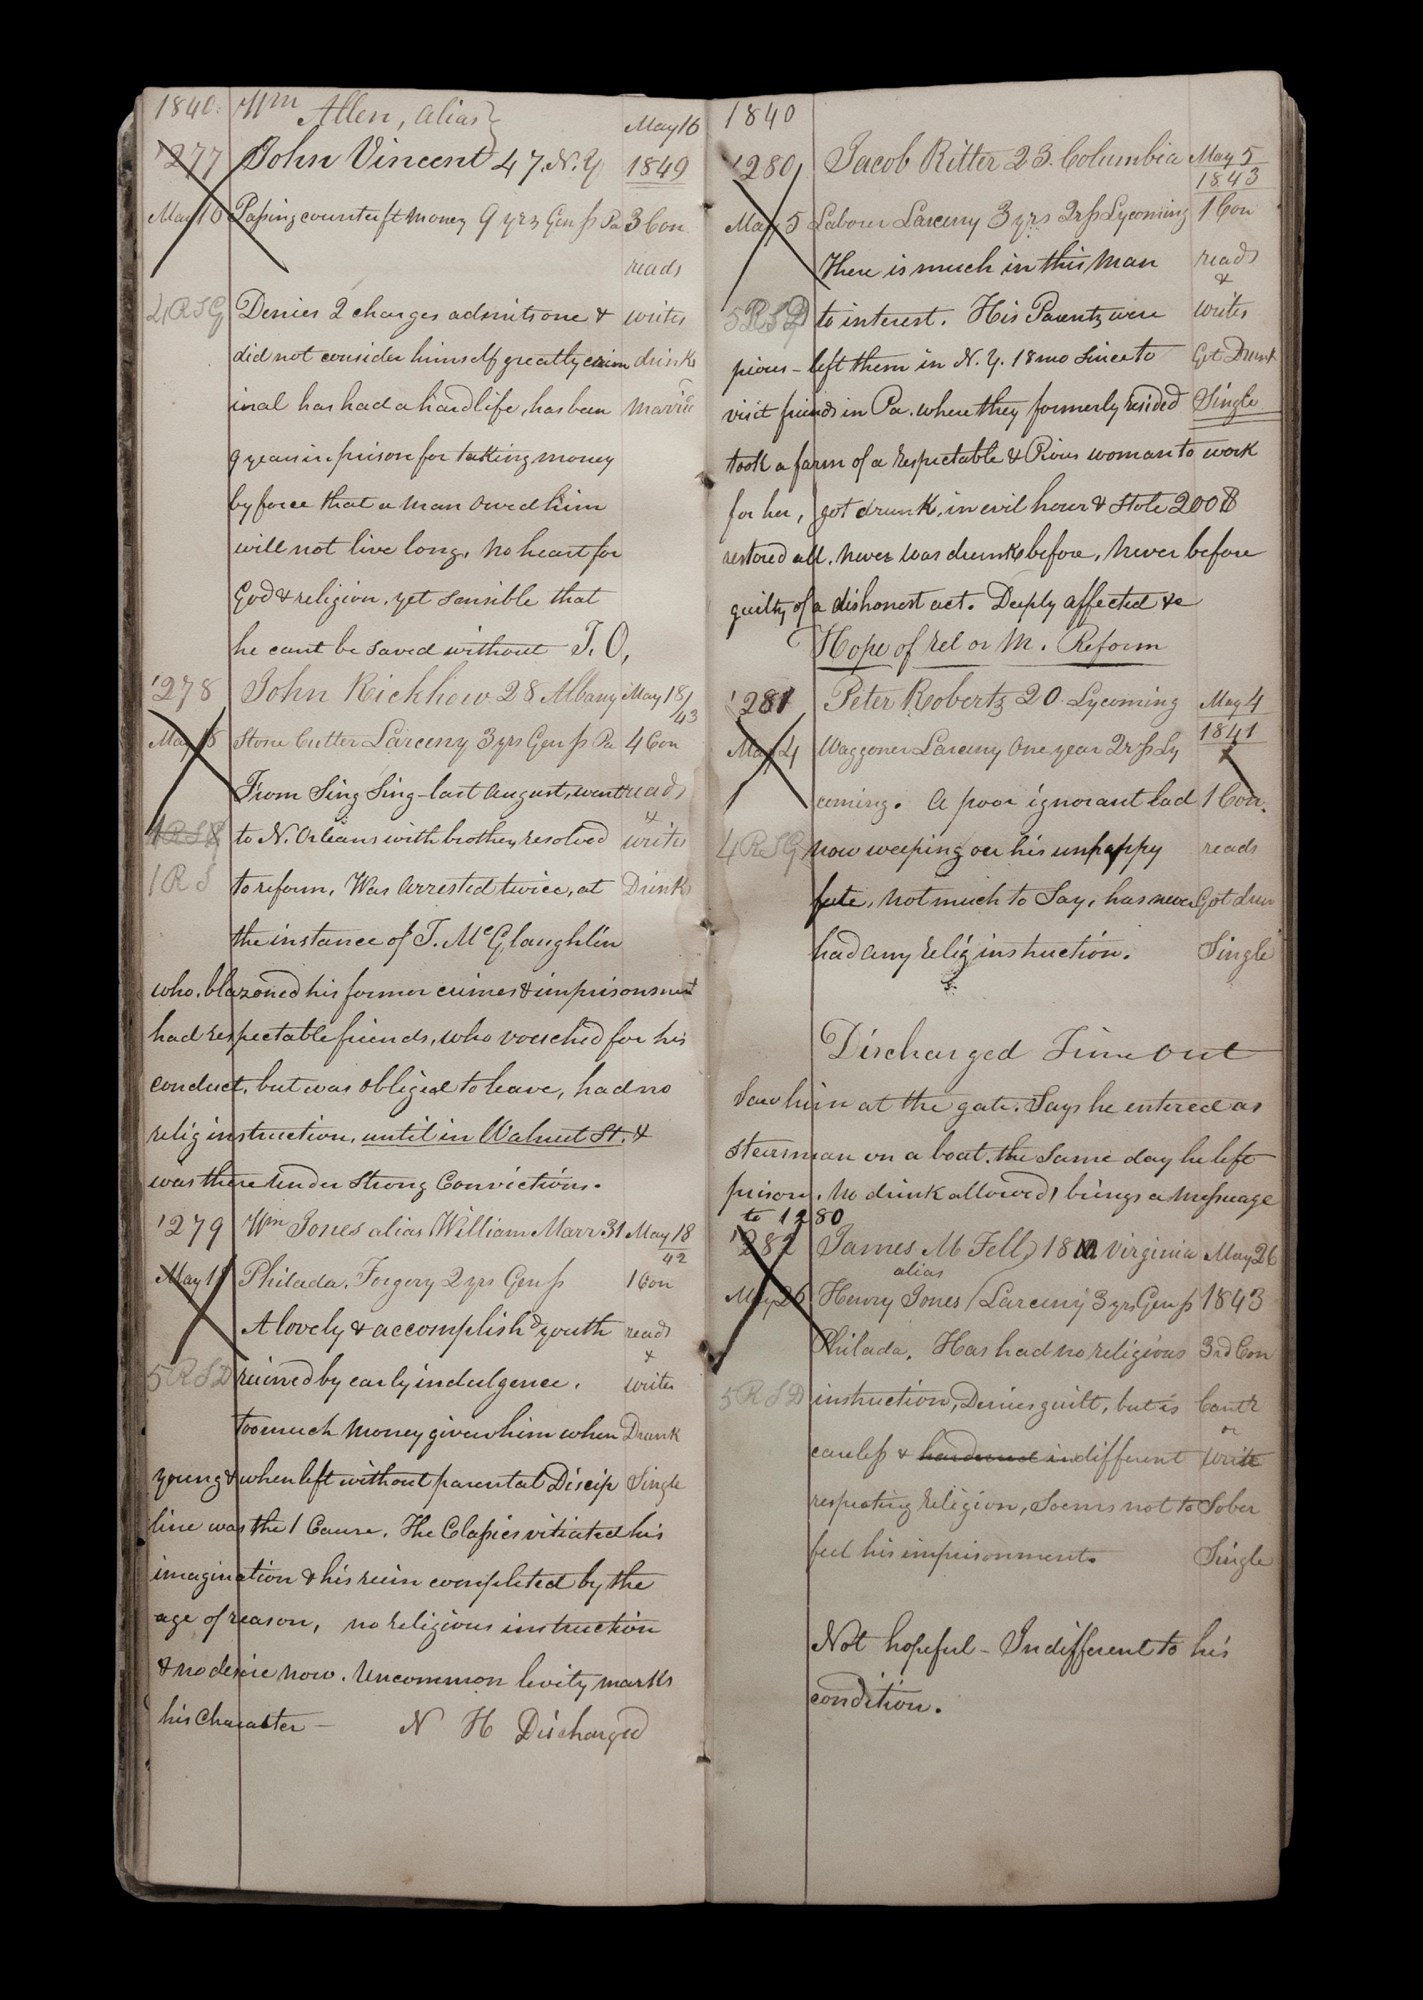 1840. Wm Allen, alias }
May 16
'277 John Vincent 47. N. Y 1849
May 16 Passing counterft money 9 yrs Gen ss Pa 3 Con
reads
4 RSG Denies 2 charges admits one & writes
did not consider himself greatly crim drinks
inal has had a hard life, has been Married
9 years in prison for taking money
by force that a man owed him
will not live long, no heart for
God & religion. yet sensible that
he cant be saved without T. O,
'278 John Kickhow 28 Albany May 18/43
May 18 Stone Cutter Larceny 3 yrs Gen ss Pa 4 Con
From Sing Sing last August, went reads
&
to N. Orleans with brother, resolved writes
1 R S to reform, Was arrested twice, at Drinks
the instance of T. McGlaughlin
who, blazoned his former crimes & imprisonment
had respectable friends, who vouched for his
conduct, but was obliged to leave, had no
relig instruction, until in Walnut St. &
was there under strong convictions.
'279 Wm Jones alias William Marr 31 May 18
42
May 18 Philada. Forgery 2 yrs Gen ss 1 Con
A lovely & accomplishd youth reads
&
5 RSD ruined by early indulgence. writes
too much money given him when Drunk
young & when left without parental Discip Single
line was the 1 Cause. The Classics vitiated his
imagination & his ruin completed by the
age of reason, no religious instruction
& no desire now. Uncommon levity marks
his Character — N H Discharged
1840
'280 Jacob Ritter 23. Columbia May 5
1843
May 5 Labourer Larceny 3 yrs Qr ss Lycoming 1 Con
There is much in this man reads
&
5 RSD to interest. His Parents were writes
pious - left them in N. Y. 18 mo since to Got Drunk
visit friends in Pa. where they formerly resided Single
took a farm of a respectable & Pious woman to work
for her, got drunk, in evil hour & stole 200$
restored all. Never was drunk before, Never before
guilty of a dishonest act. Deeply affected &c
Hope of Rel or M. Reform
'281 Peter Roberts 20 Lycoming May 4
1841
May 4 Waggoner Larceny One year Qr ss Ly
coming. A poor ignorant lad 1 Con.
4 RSG now weeping over his unhappy reads
fate, not much to say, has never Got drun
had any relig instruction. Single
Discharged Time out
Saw him at the gate. Says he entered as
steersman on a boat. the same day he left
prison. No drink allowed, brings a message
to 1280
'282 James M Fell, 18 Virginia May 26
alias
May 26 Henry Jones / Larceny 3 yrs Gen ss 1843
Philada. Has had no religious 3rd Con
5 RSD instruction, Denies guilt, but is Cant r
or
careless & hardened indifferent write
respecting religion, seems not to Sober
feel his imprisonment. Single
Not hopeful - Indifferent to his
condition.